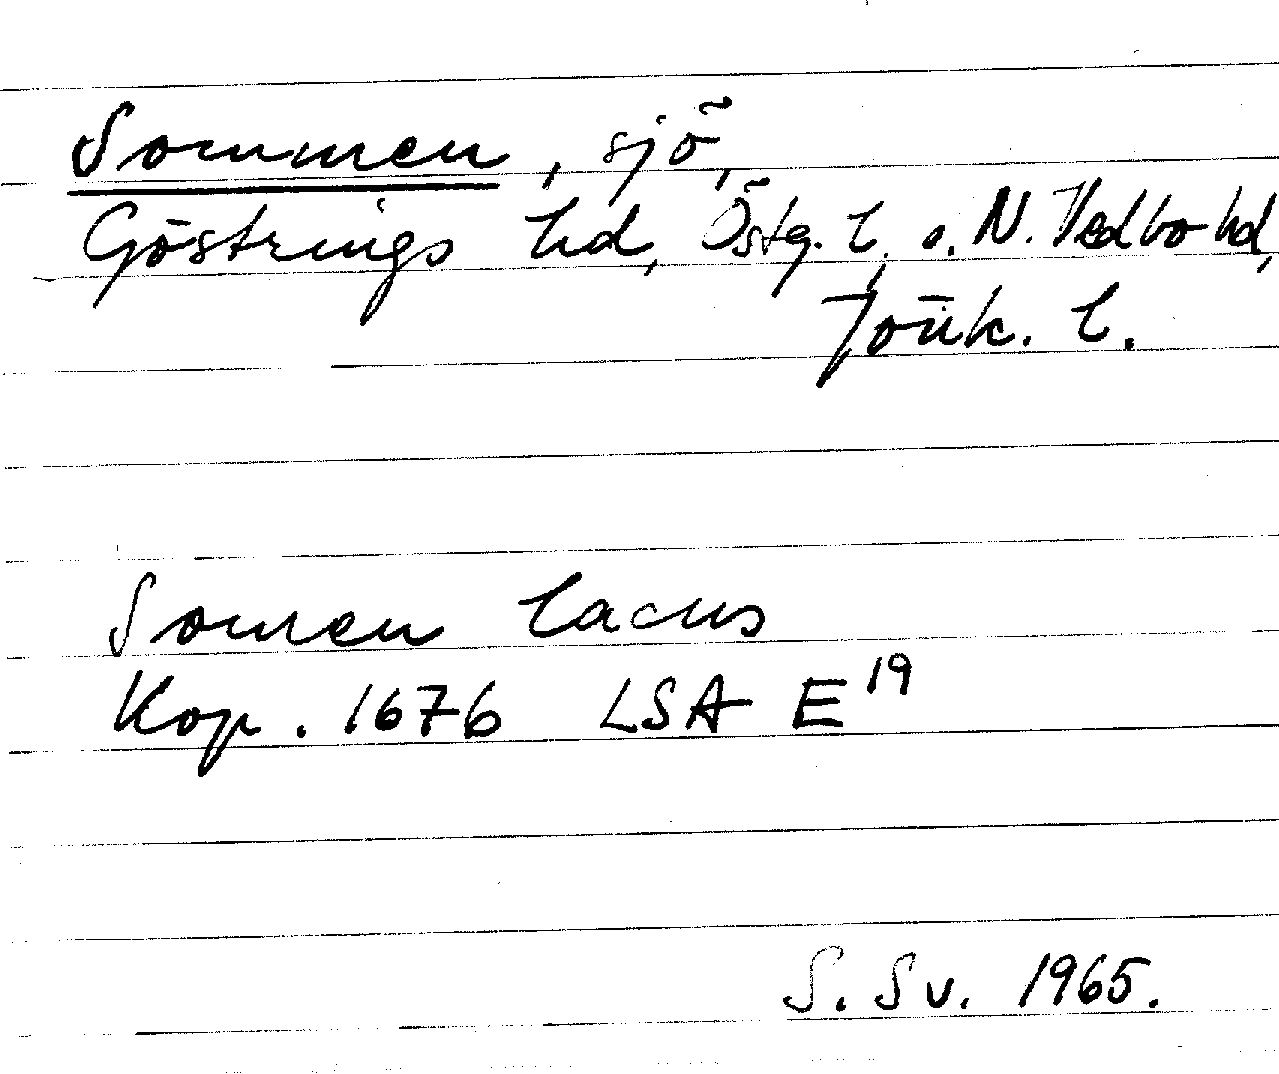 Sommen, sjö,
Göstrings hd, Östg. l. o. N. Vedbo hd,
Jönk. l.
Somen Lacus
Kop. 1676 LSA E 19
S. Sv. 1965.